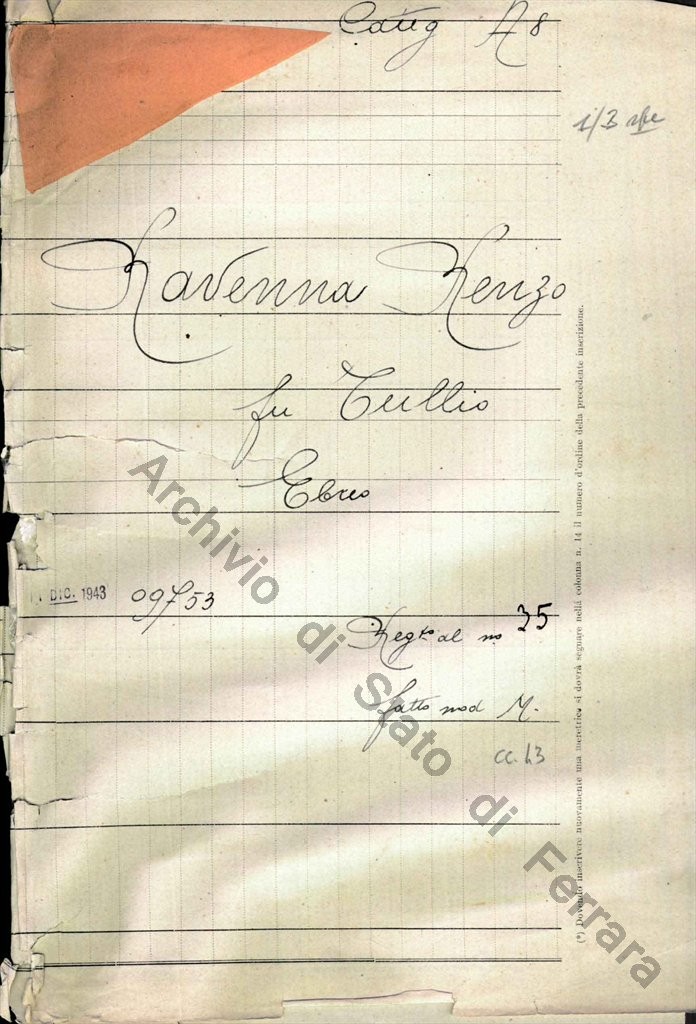 Categ A 8
Ravenna Renzo
fu Tullio
Ebreo
DIC. 1943 09753
Reg.to al no 35
fatto mod M.
cc. 43
(*) Dovendo inscrivere nuovamente una meretrice, si dovrà segnare nella colonna n. 14 il numero d'ordine della precedente inscrizione.
Archivio di Stato di Ferrara